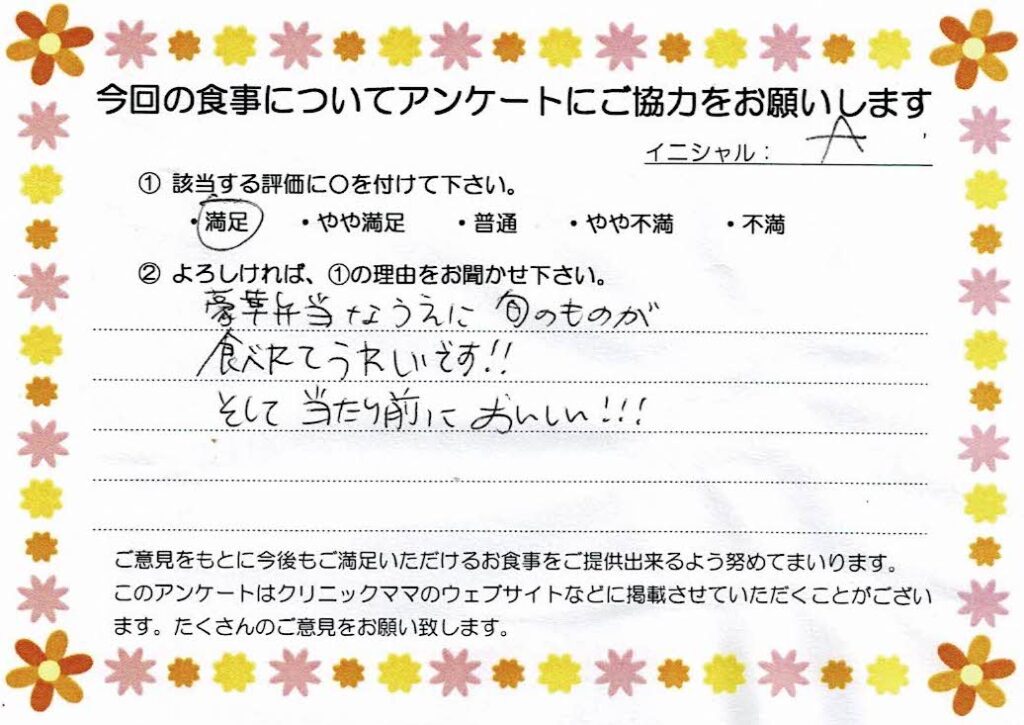 今回の食事についてアンケートにご協力をお願いします
イニシャル： A
① 該当する評価に〇を付けて下さい。
・満足 ・やや満足 ・普通 ・やや不満 ・不満
② よろしければ、①の理由をお聞かせ下さい。
豪華弁当なうえに 旬のものが
食べれてうれしいです!!
そして 当たり前に おいしい!!!
ご意見をもとに今後もご満足いただけるお食事をご提供出来るよう努めてまいります。
このアンケートはクリニックママのウェブサイトなどに掲載させていただくことがござい
ます。たくさんのご意見をお願い致します。